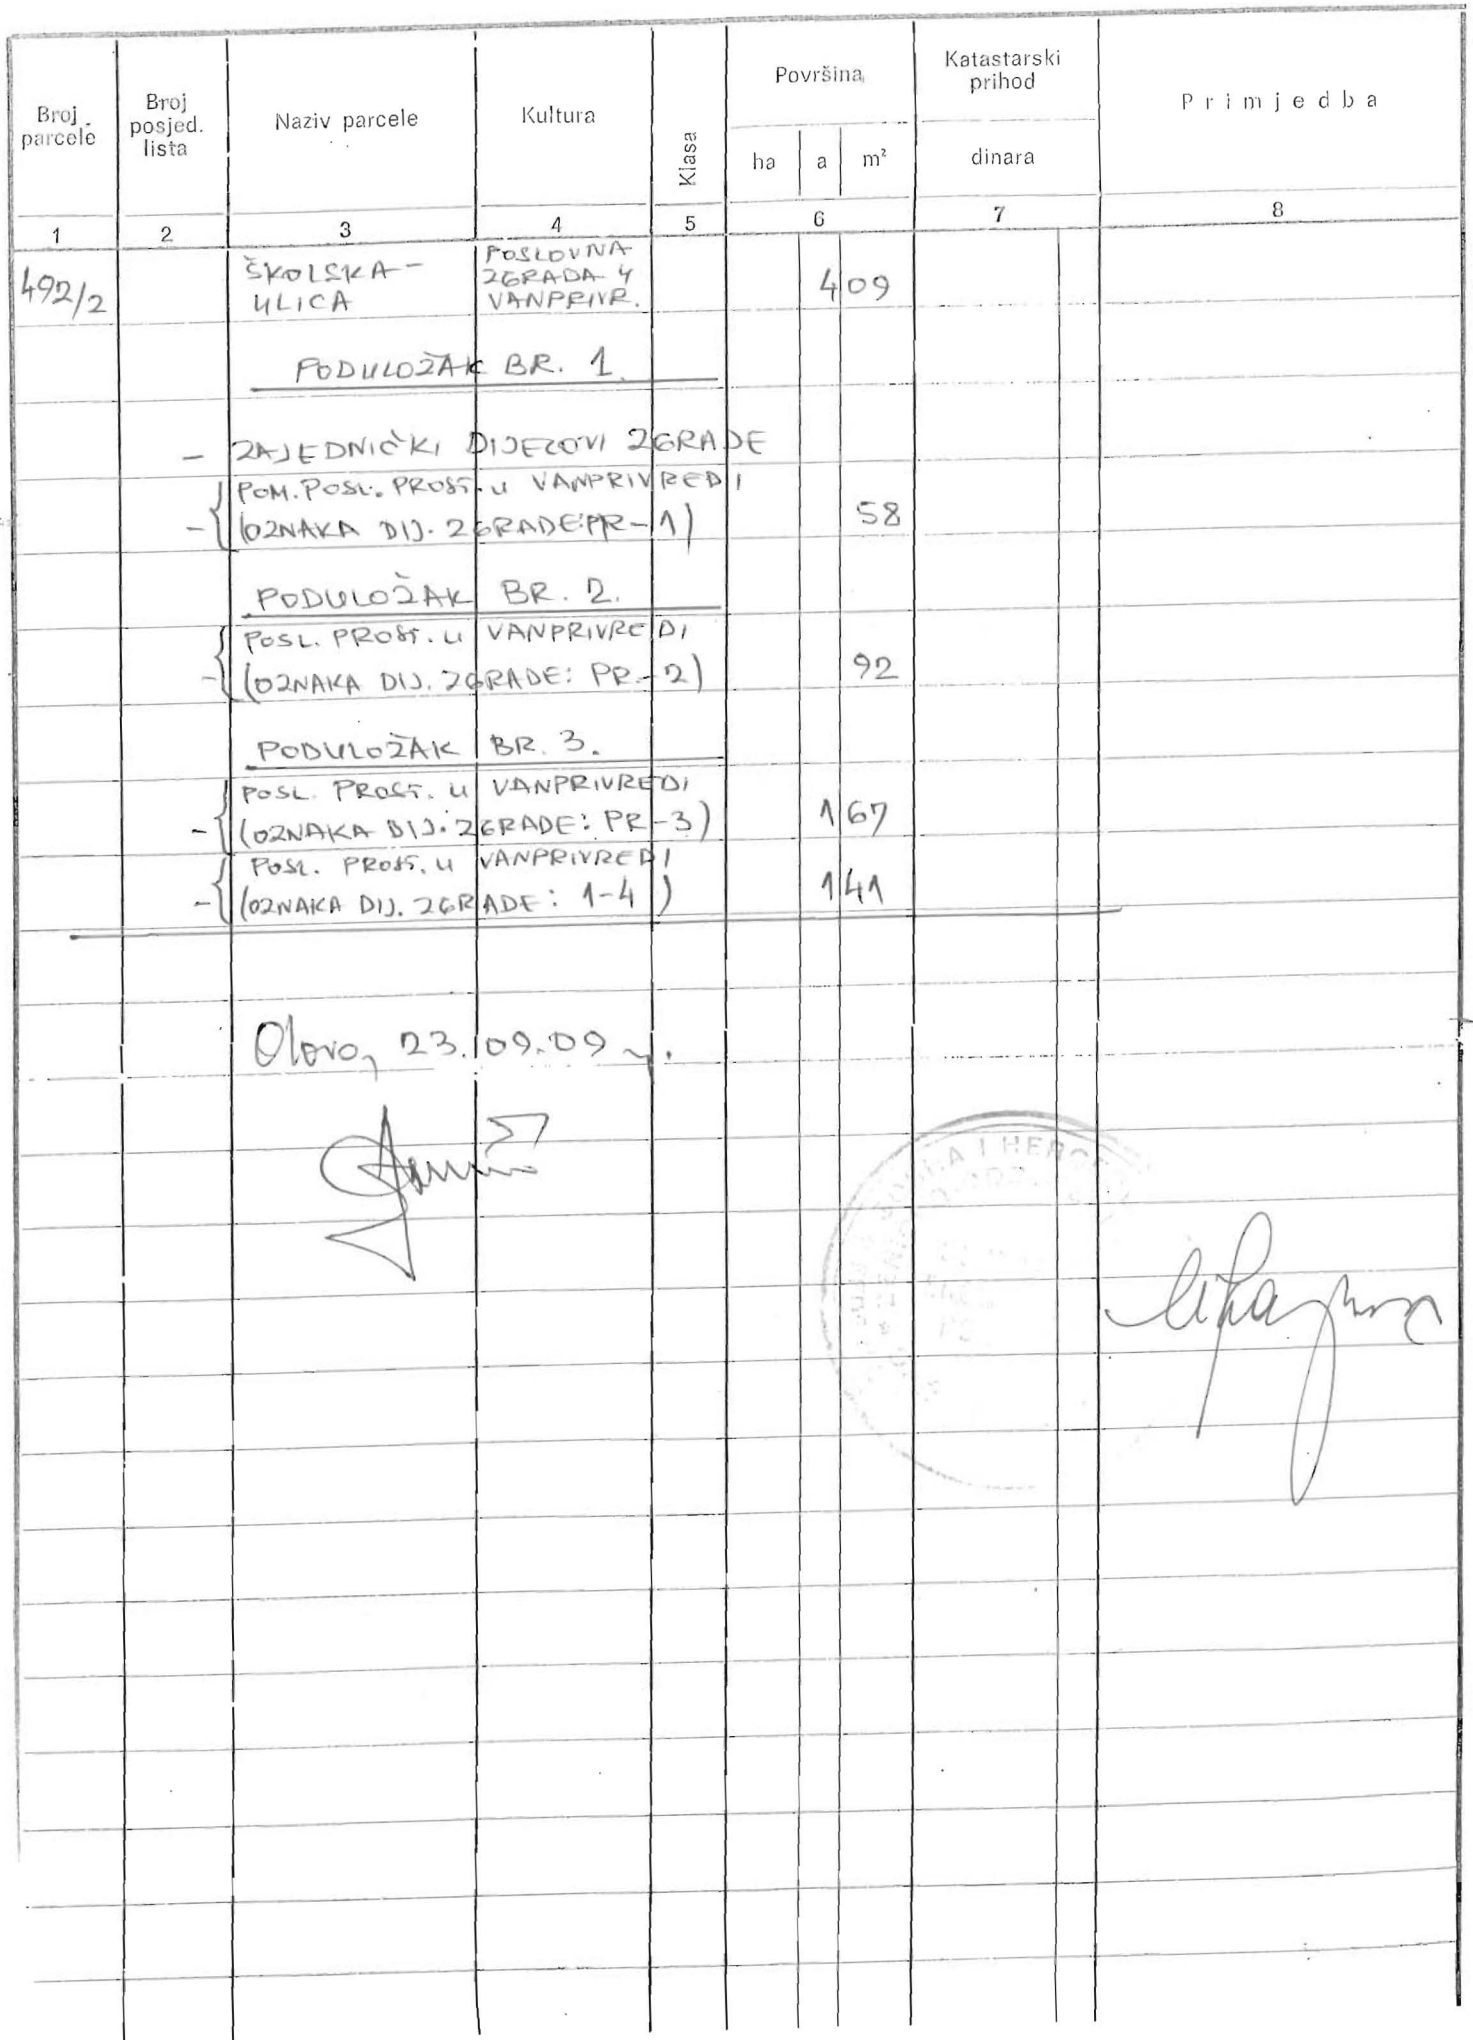 Broj parcele
Broj posjed. lista
Naziv parcele
Kultura
Klasa
Površina
ha a m²
Katastarski prihod
dinara
Primjedba
1 2 3 4 5 6 7 8
492/2 ŠKOLSKA ULICA POSLOVNA ZGRADA U VANPRIVR. 4 09
PODULOŽAK BR. 1
- ZAJEDNIČKI DIJELOVI ZGRADE
POM. POSL. PROST. U VANPRIVREDI
- (OZNAKA DIJ. ZGRADE: PR-1) 58
PODULOŽAK BR. 2.
POSL. PROST. U VANPRIVREDI
- (OZNAKA DIJ. ZGRADE: PR-2) 92
PODULOŽAK BR. 3.
POSL. PROST. U VANPRIVREDI
- (OZNAKA DIJ. ZGRADE: PR-3) 1 67
POSL. PROST. U VANPRIVREDI
- (OZNAKA DIJ. ZGRADE: 1-4) 1 41
Olovo, 23.09.09